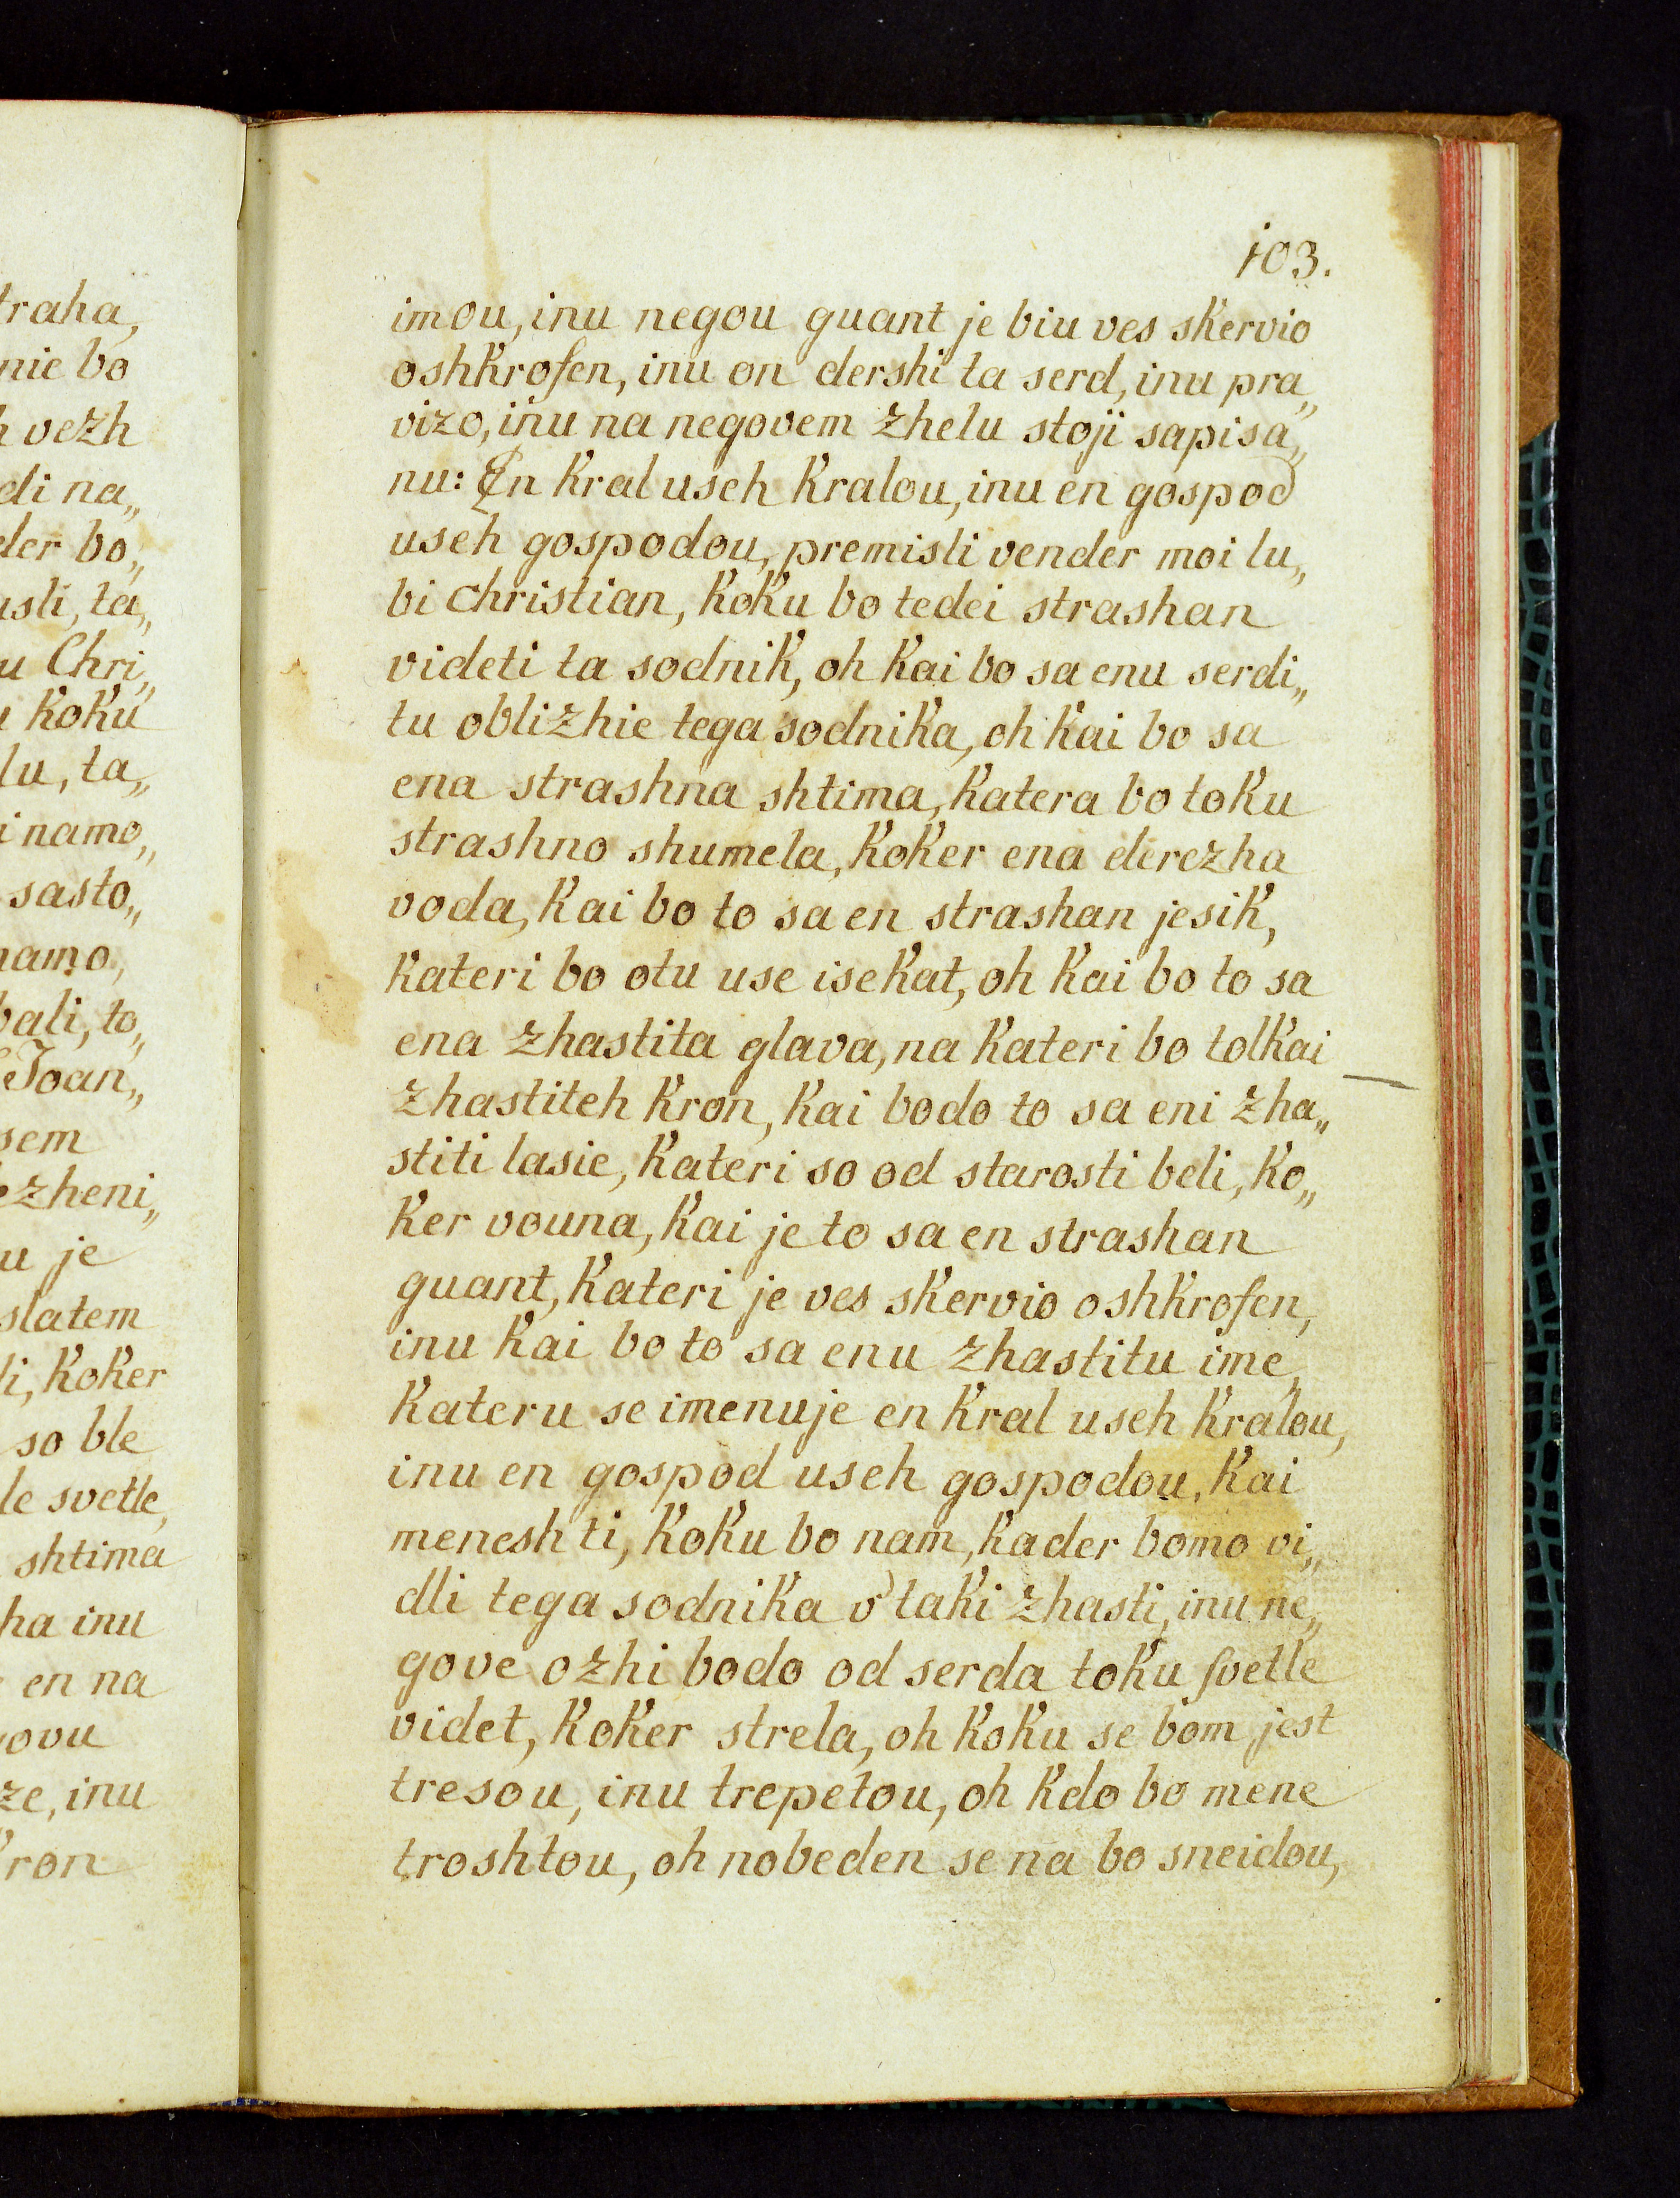 traha,
nie bo
h vezh
di na„
der bo„
isli, ta„
u Chri„
koku
lu, ta„
i namo„
sasto„
namo,
bali, to„
Joan„
sem
zheni„
u je
slatem
li, koker
so ble
le svetle,
shtima
ha inu
en na
ovu
ze, inu
kron
103.
imou, inu negou guant je biu ves skervio
oshkrofen, inu on dershi ta serd, inu pra„
vizo, inu na negovem zhelu stoji sapisa„
nu: En kral useh kralou, inu en gospod
useh gospodou, premisli vender moi lu„
bi christian, koku bo tedei strashan
videti ta sodnik, oh kai bo sa enu serdi„
tu oblizhie tega sodnika, oh kai bo sa
ena strashna shtima, katera bo toku
strashno shumela, koker ena derezha
voda, kai bo to sa en strashan jesik,
kateri bo otu use isekat, oh kai bo to sa
ena zhastita glava, na kateri bo tolkai
zhastiteh kron, kai bodo to sa eni zha„
stiti lasie, kateri so od starosti beli, ko„
ker vouna, kai je to sa en strashan
guant, kateri je ves skervio oshkrofen,
inu kai bo to sa enu zhastitu ime,
kateru se imenuje en kral useh kralou,
inu en gospod useh gospodou, kai
menesh ti, koku bo nam, kader bomo vi„
dli tega sodnika v' taki zhasti, inu ne„
gove ozhi bodo od serda toku svetle
videt, koker strela, oh koku se bom jest
tresou, inu trepetou, oh kdo bo mene
troshtou, oh nobeden se na bo sneidou,